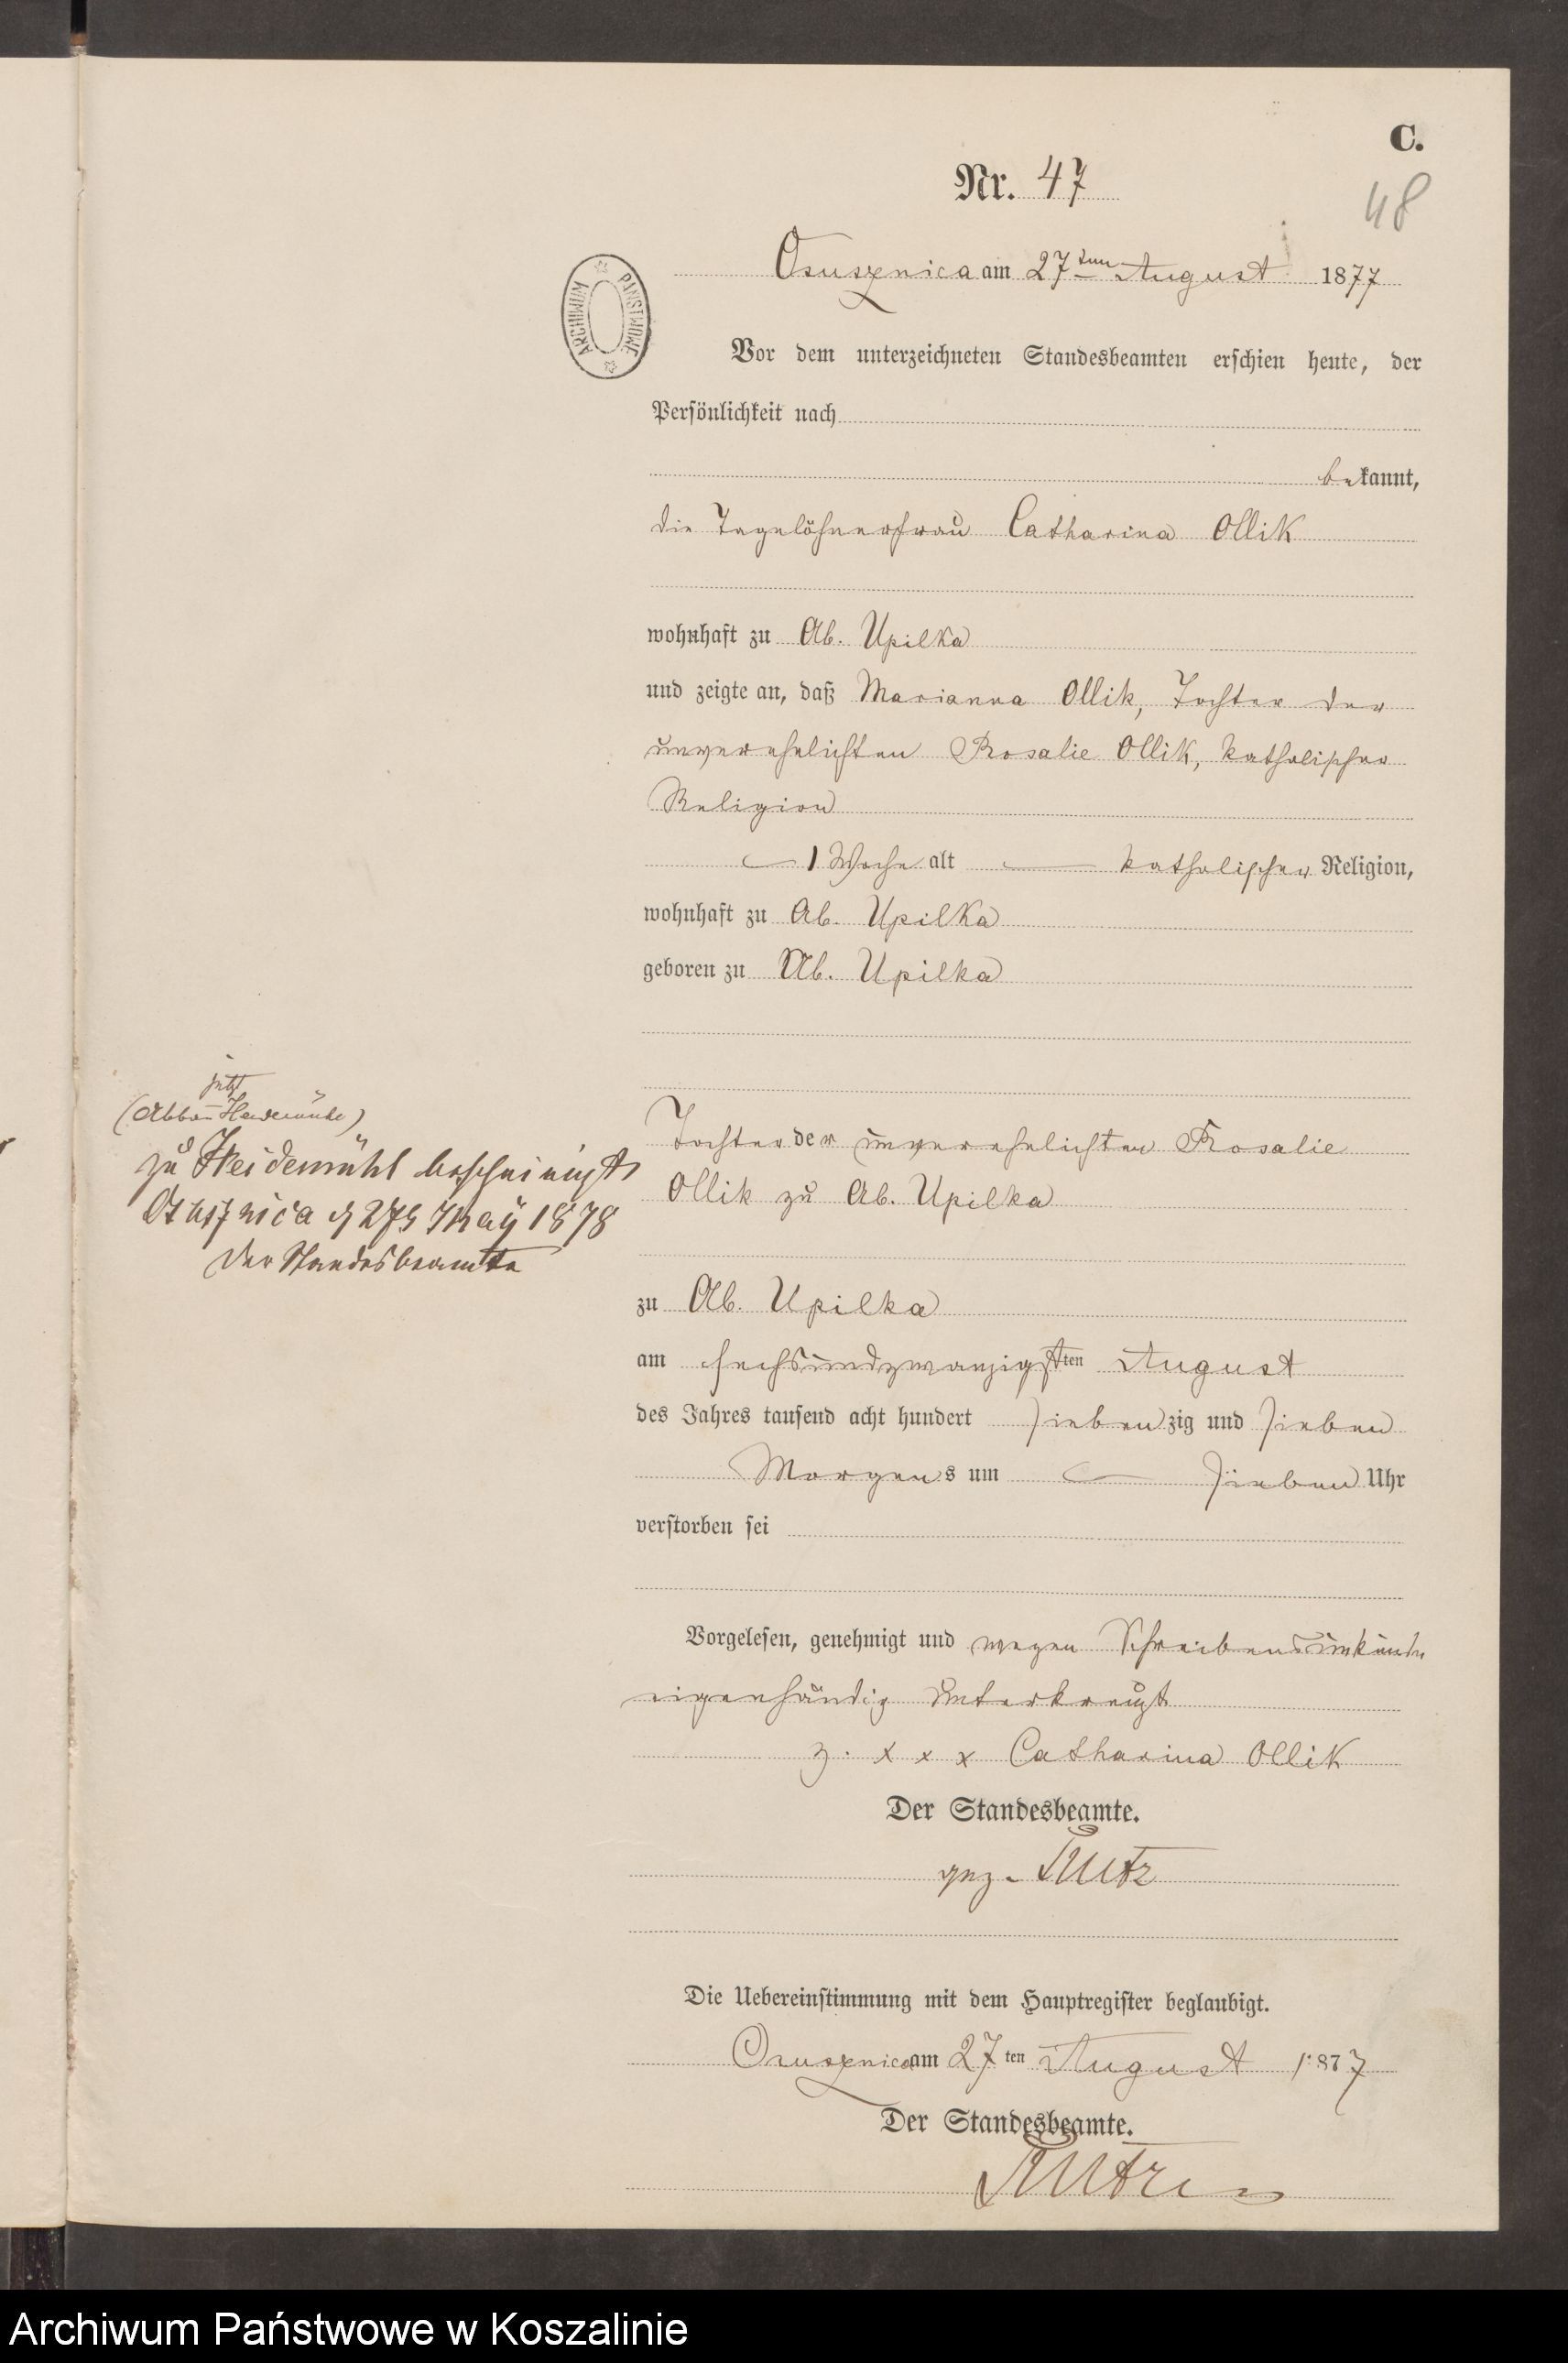 C.
Nr. 47
48
Osusznica am 27ten August 1877
ARCHIWUM PAŃSTWOWE
Vor dem unterzeichneten Standesbeamten erschien heute, der
Persönlichkeit nach
bekannt,
die Tagelöhnerfrau Catharina Ollik
wohnhaft zu Ab. Upilka
und zeigte an, daß Marianna Ollik, Tochter der
unverehelichten Rosalie Ollik, katholischer
Religion
1 Woche alt katholischer Religion,
wohnhaft zu Ab. Upilka
geboren zu Ab. Upilka
jetzt
(Abbau
zu Heidemühl bescheinigt
27 May 1878
Der Standesbeamte
Tochter der unverehelichten Rosalie
Ollik zu Ab. Upilka
zu Ab. Upilka
am sechsundzwanzigsten August
des Jahres tausend acht hundert siebenzig und sieben
Morgens um sieben Uhr
verstorben sei
Vorgelesen, genehmigt und wegen Schreibensunkunde
eigenhändig unterkreuzt
z. x x x Catharina Ollik
Der Standesbeamte.
gez.
Die Uebereinstimmung mit dem Hauptregister beglaubigt.
Osusznica am 27ten August 1877
Der Standesbeamte.
Archiwum Państwowe w Koszalinie